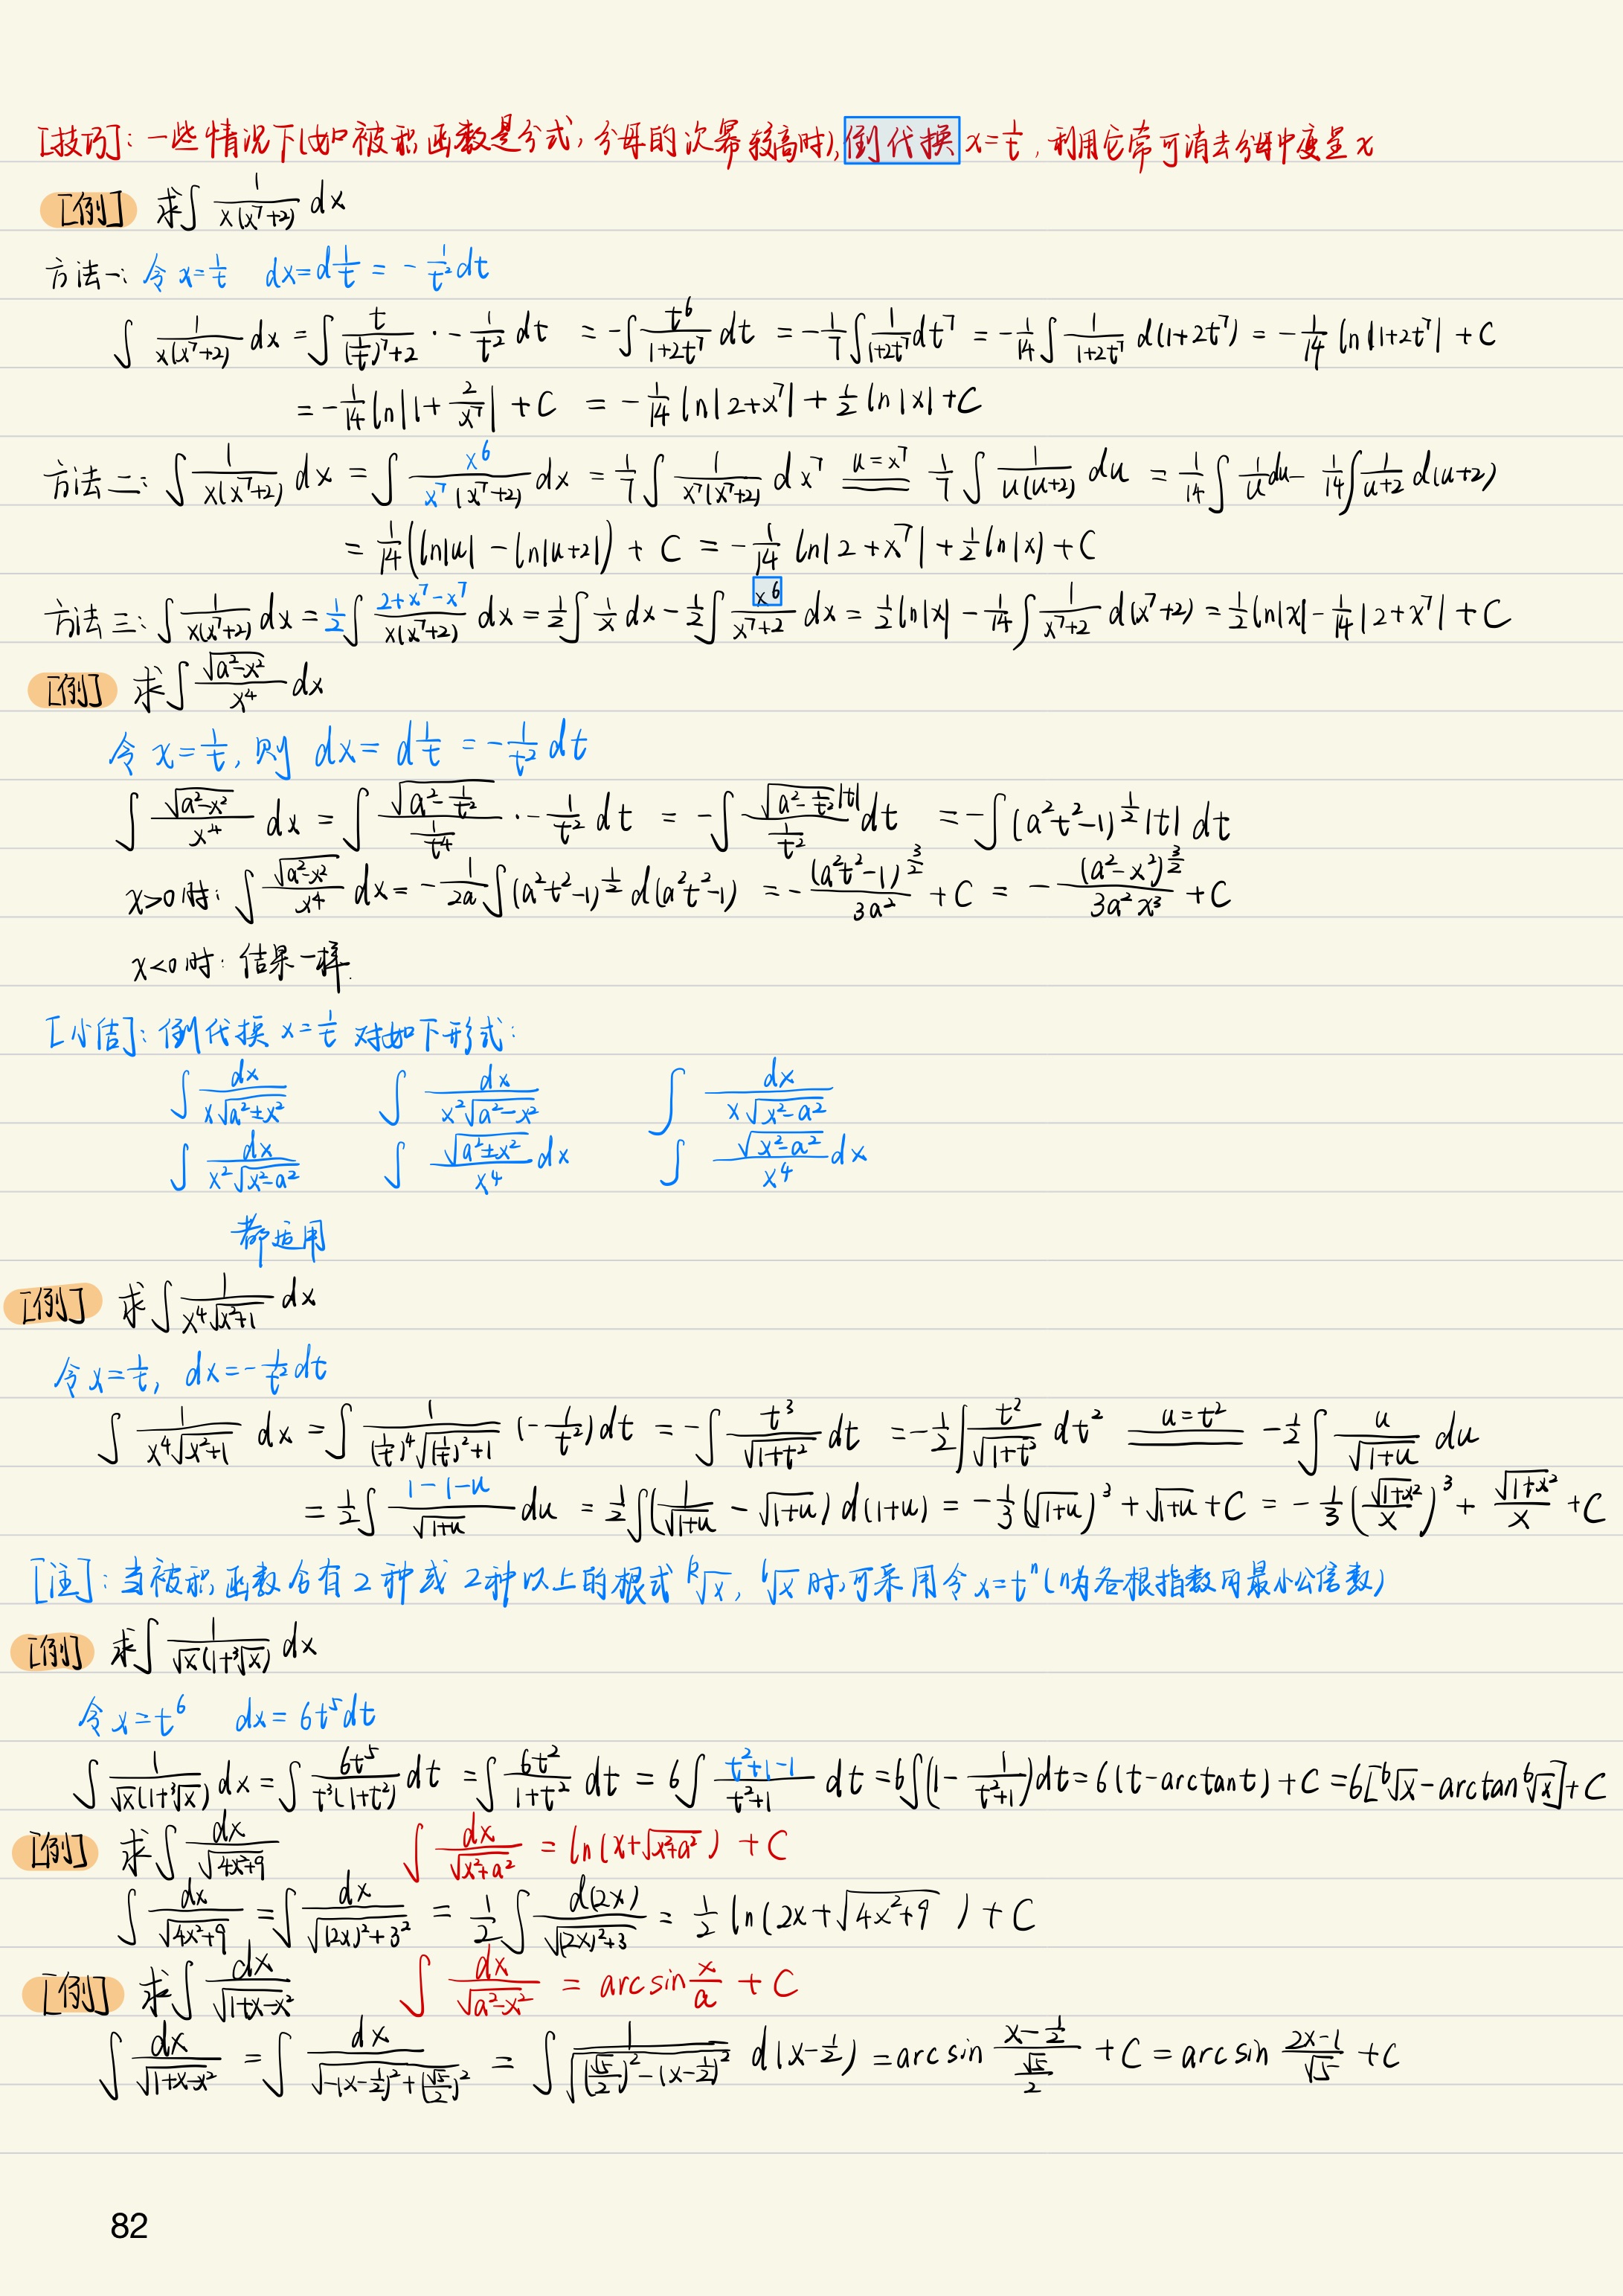 [技巧]: 一些情况下(如被积函数是分式, 分母的次幂较高时), 倒代换 x=1/t, 利用它常可消去分母中变量 x
[例] 求∫ 1/(x(x⁷+2)) dx
方法一: 令 x=1/t  dx=d(1/t) = -1/t² dt
∫ 1/(x(x⁷+2)) dx = ∫ t/((1/t)⁷+2) · -1/t² dt = -∫ t⁶/(1+2t⁷) dt = -1/7 ∫ 1/(1+2t⁷) dt⁷ = -1/14 ∫ 1/(1+2t⁷) d(1+2t⁷) = -1/14 ln|1+2t⁷| + C
= -1/14 ln|1+2/x⁷| + C = -1/14 ln|2+x⁷| + 1/2 ln|x| + C
方法二: ∫ 1/(x(x⁷+2)) dx = ∫ x⁶/(x⁷(x⁷+2)) dx = 1/7 ∫ 1/(x⁷(x⁷+2)) dx⁷ ==(u=x⁷)== 1/7 ∫ 1/(u(u+2)) du = 1/14 ∫ 1/u du - 1/14 ∫ 1/(u+2) d(u+2)
= 1/14 (ln|u| - ln|u+2|) + C = -1/14 ln|2+x⁷| + 1/2 ln|x| + C
方法三: ∫ 1/(x(x⁷+2)) dx = 1/2 ∫ (2+x⁷-x⁷)/(x(x⁷+2)) dx = 1/2 ∫ 1/x dx - 1/2 ∫ x⁶/(x⁷+2) dx = 1/2 ln|x| - 1/14 ∫ 1/(x⁷+2) d(x⁷+2) = 1/2 ln|x| - 1/14 |2+x⁷| + C
[例] 求∫ √(a²-x²)/x⁴ dx
令 x=1/t, 则 dx = d(1/t) = -1/t² dt
∫ √(a²-x²)/x⁴ dx = ∫ √(a²-1/t²)/(1/t⁴) · -1/t² dt = -∫ √(a²-1/t²)|t|/(1/t²) dt = -∫ (a²t²-1)^(1/2) |t| dt
x>0时: ∫ √(a²-x²)/x⁴ dx = -1/(2a) ∫ (a²t²-1)^(1/2) d(a²t²-1) = -(a²t²-1)^(3/2)/(3a²) + C = -(a²-x²)^(3/2)/(3a²x³) + C
x<0时: 结果一样.
[小结]: 倒代换 x=1/t 对如下形式:
∫ dx/(x√(a²±x²))  ∫ dx/(x²√(a²-x²))  ∫ dx/(x√(x²-a²))
∫ dx/(x²√(x²-a²))  ∫ √(a²±x²)/x⁴ dx  ∫ √(x²-a²)/x⁴ dx
都适用
[例] 求∫ 1/(x⁴√(x²+1)) dx
令 x=1/t, dx=-1/t² dt
∫ 1/(x⁴√(x²+1)) dx = ∫ 1/((1/t)⁴√((1/t)²+1)) (-1/t²) dt = -∫ t³/√(1+t²) dt = -1/2 ∫ t²/√(1+t²) dt² ==(u=t²)== -1/2 ∫ u/√(1+u) du
= 1/2 ∫ (1-1-u)/√(1+u) du = 1/2 ∫ (1/√(1+u) - √(1+u)) d(1+u) = -1/3 (√(1+u))³ + √(1+u) + C = -1/3 (√(1+x²)/x)³ + √(1+x²)/x + C
[注]: 当被积函数含有2种或2种以上的根式 ᵏ√x, ˡ√x 时,可采用令 x=tⁿ (n为各根指数的最小公倍数)
[例] 求∫ 1/(√x(1+³√x)) dx
令 x=t⁶  dx=6t⁵dt
∫ 1/(√x(1+³√x)) dx = ∫ 6t⁵/(t³(1+t²)) dt = ∫ 6t²/(1+t²) dt = 6∫ (t²+1-1)/(t²+1) dt = 6∫ (1-1/(t²+1)) dt = 6(t-arctan t) + C = 6[⁶√x - arctan ⁶√x] + C
[例] 求∫ dx/√(4x²+9)  ∫ dx/√(x²+a²) = ln(x+√(x²+a²)) + C
∫ dx/√(4x²+9) = ∫ dx/√((2x)²+3²) = 1/2 ∫ d(2x)/√((2x)²+3) = 1/2 ln(2x+√(4x²+9)) + C
[例] 求∫ dx/√(1+x-x²)  ∫ dx/√(a²-x²) = arcsin x/a + C
∫ dx/√(1+x-x²) = ∫ dx/√(-(x-1/2)²+(√5/2)²) = ∫ 1/√((√5/2)²-(x-1/2)²) d(x-1/2) = arcsin (x-1/2)/(√5/2) + C = arcsin (2x-1)/√5 + C
82